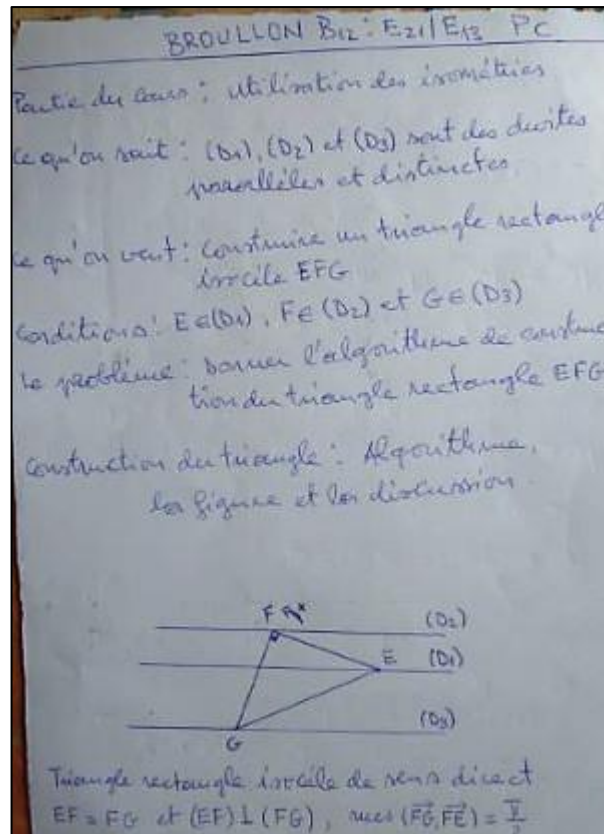 BROUILLON B12: E21/E13 PC
Partie du cours : utilisation des isométries
ce qu'on sait : (D1), (D2) et (D3) sont des droites
parallèles et distinctes.
ce qu'on veut : construire un triangle rectangle
isocèle EFG
conditions : E∈(D1), F∈(D2) et G∈(D3)
le problème : Donner l'algorithme de construc
tion du triangle rectangle EFG
construction du triangle : Algorithme,
la figure et la discussion.
F
(D2)
E (D1)
(D3)
G
Triangle rectangle isocèle de sens direct
EF = FG et (EF)⊥(FG), mes (FG, FE) =